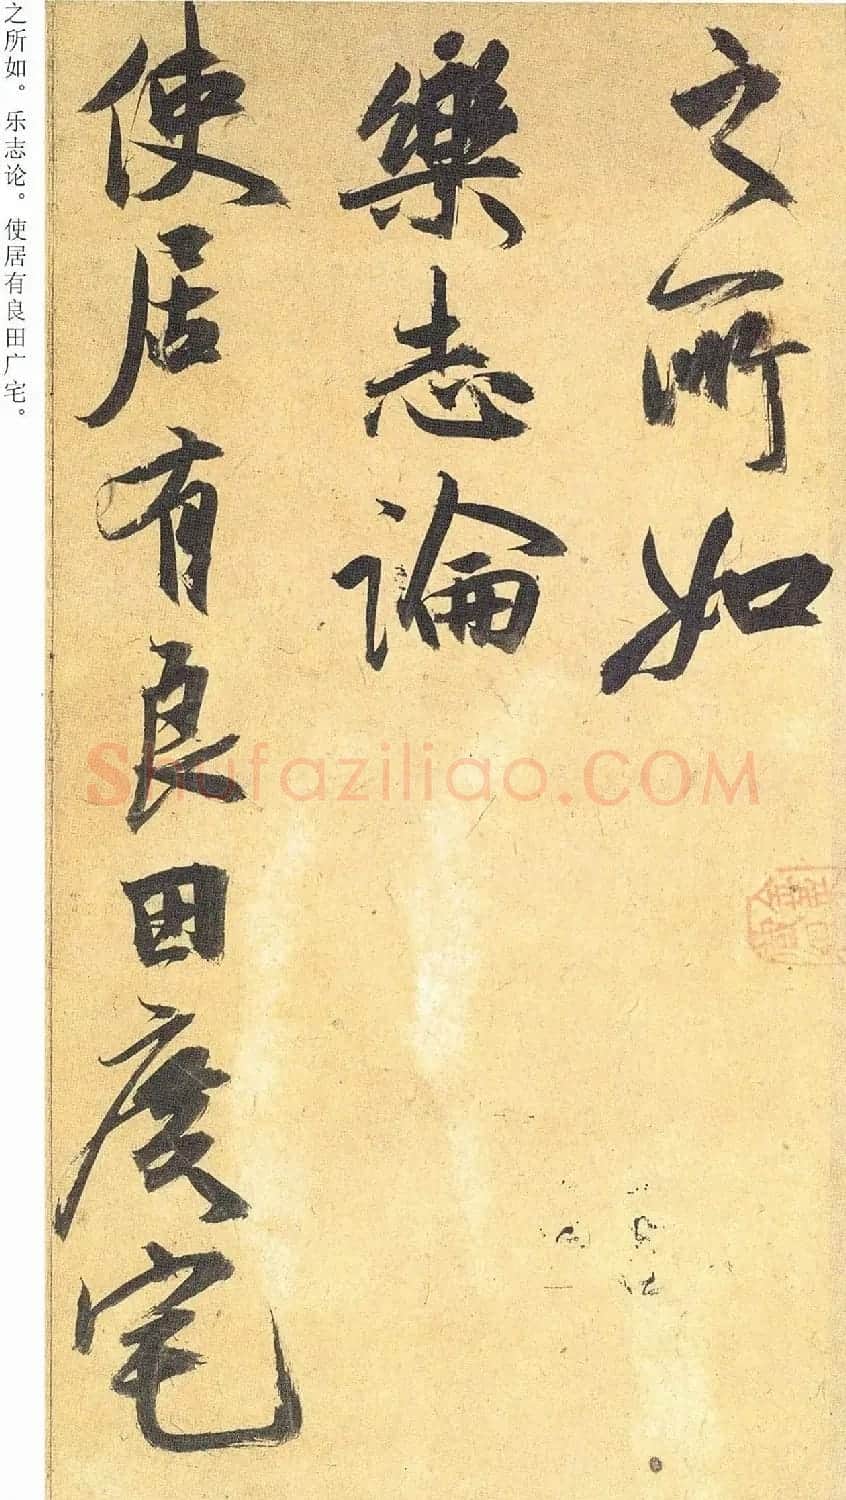 之所如
樂志論
使居有良田廣宅
之所如。乐志论。使居有良田广宅。
Shufaziliao.COM